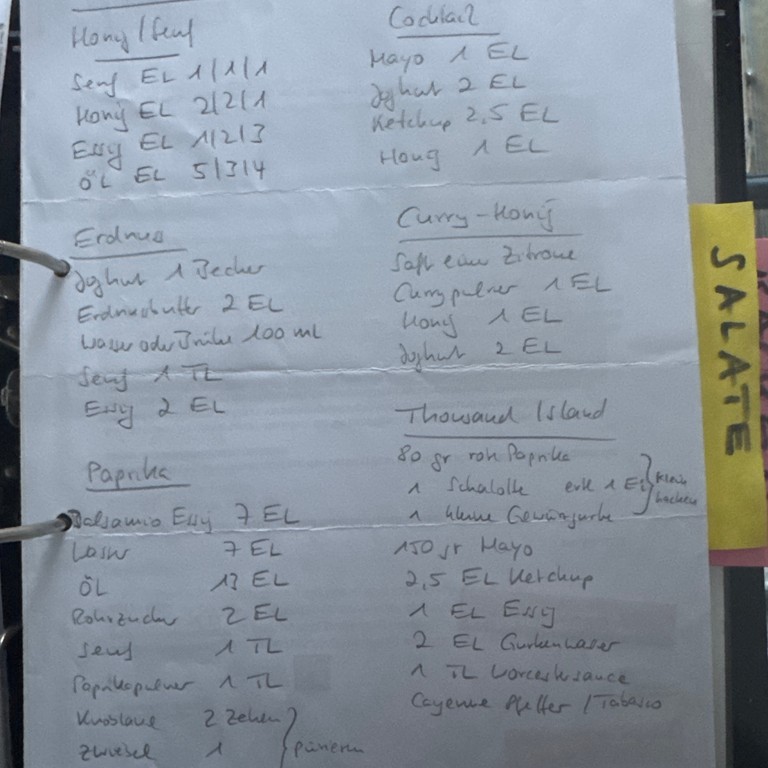 Honig/Senf
Senf EL 1/1/1
Honig EL 2/2/1
Essig EL 1/2/3
ÖL EL 5/3/4
Erdnuss
Joghurt 1 Becher
Erdnussbutter 2 EL
Wasser oder Brühe 100 ml
Senf 1 TL
Essig 2 EL
Paprika
Balsamico Essig 7 EL
Wasser 7 EL
ÖL 13 EL
Rohrzucker 2 EL
Senf 1 TL
Paprikapulver 1 TL
Knoblauch 2 Zehen
Zwiebel 1 } pürieren
Cocktail
Mayo 1 EL
Joghurt 2 EL
Ketchup 2,5 EL
Honig 1 EL
Curry-Honig
Saft einer Zitrone
Currypulver 1 EL
Honig 1 EL
Joghurt 2 EL
Thousand Island
80 gr rote Paprika
1 Schalotte evtl 1 Ei } klein
1 kleine Gewürzgurke hacken
150 gr Mayo
2,5 EL Ketchup
1 EL Essig
2 EL Gurkenwasser
1 TL Worcestersauce
Cayenne Pfeffer / Tabasco
SALATE